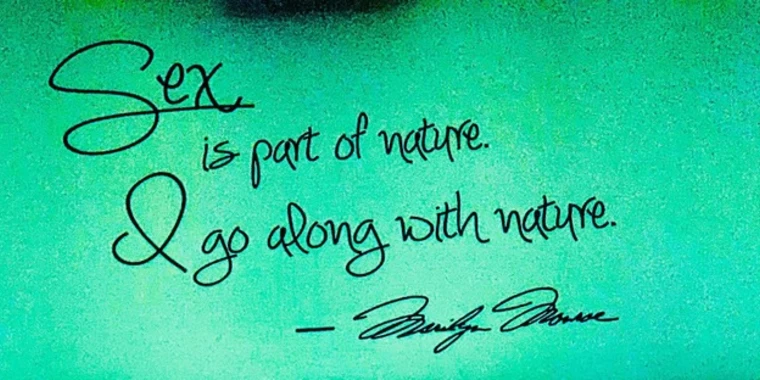 Sex
is part of nature.
I go along with nature.
— Marilyn Monroe